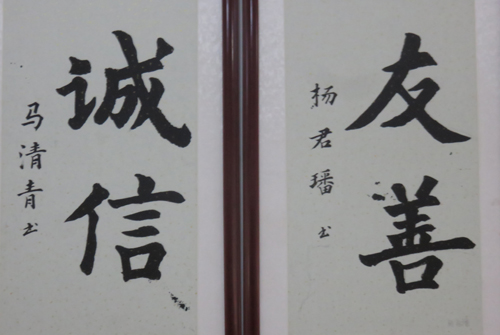 友善
杨君璠书
诚信
马清青书